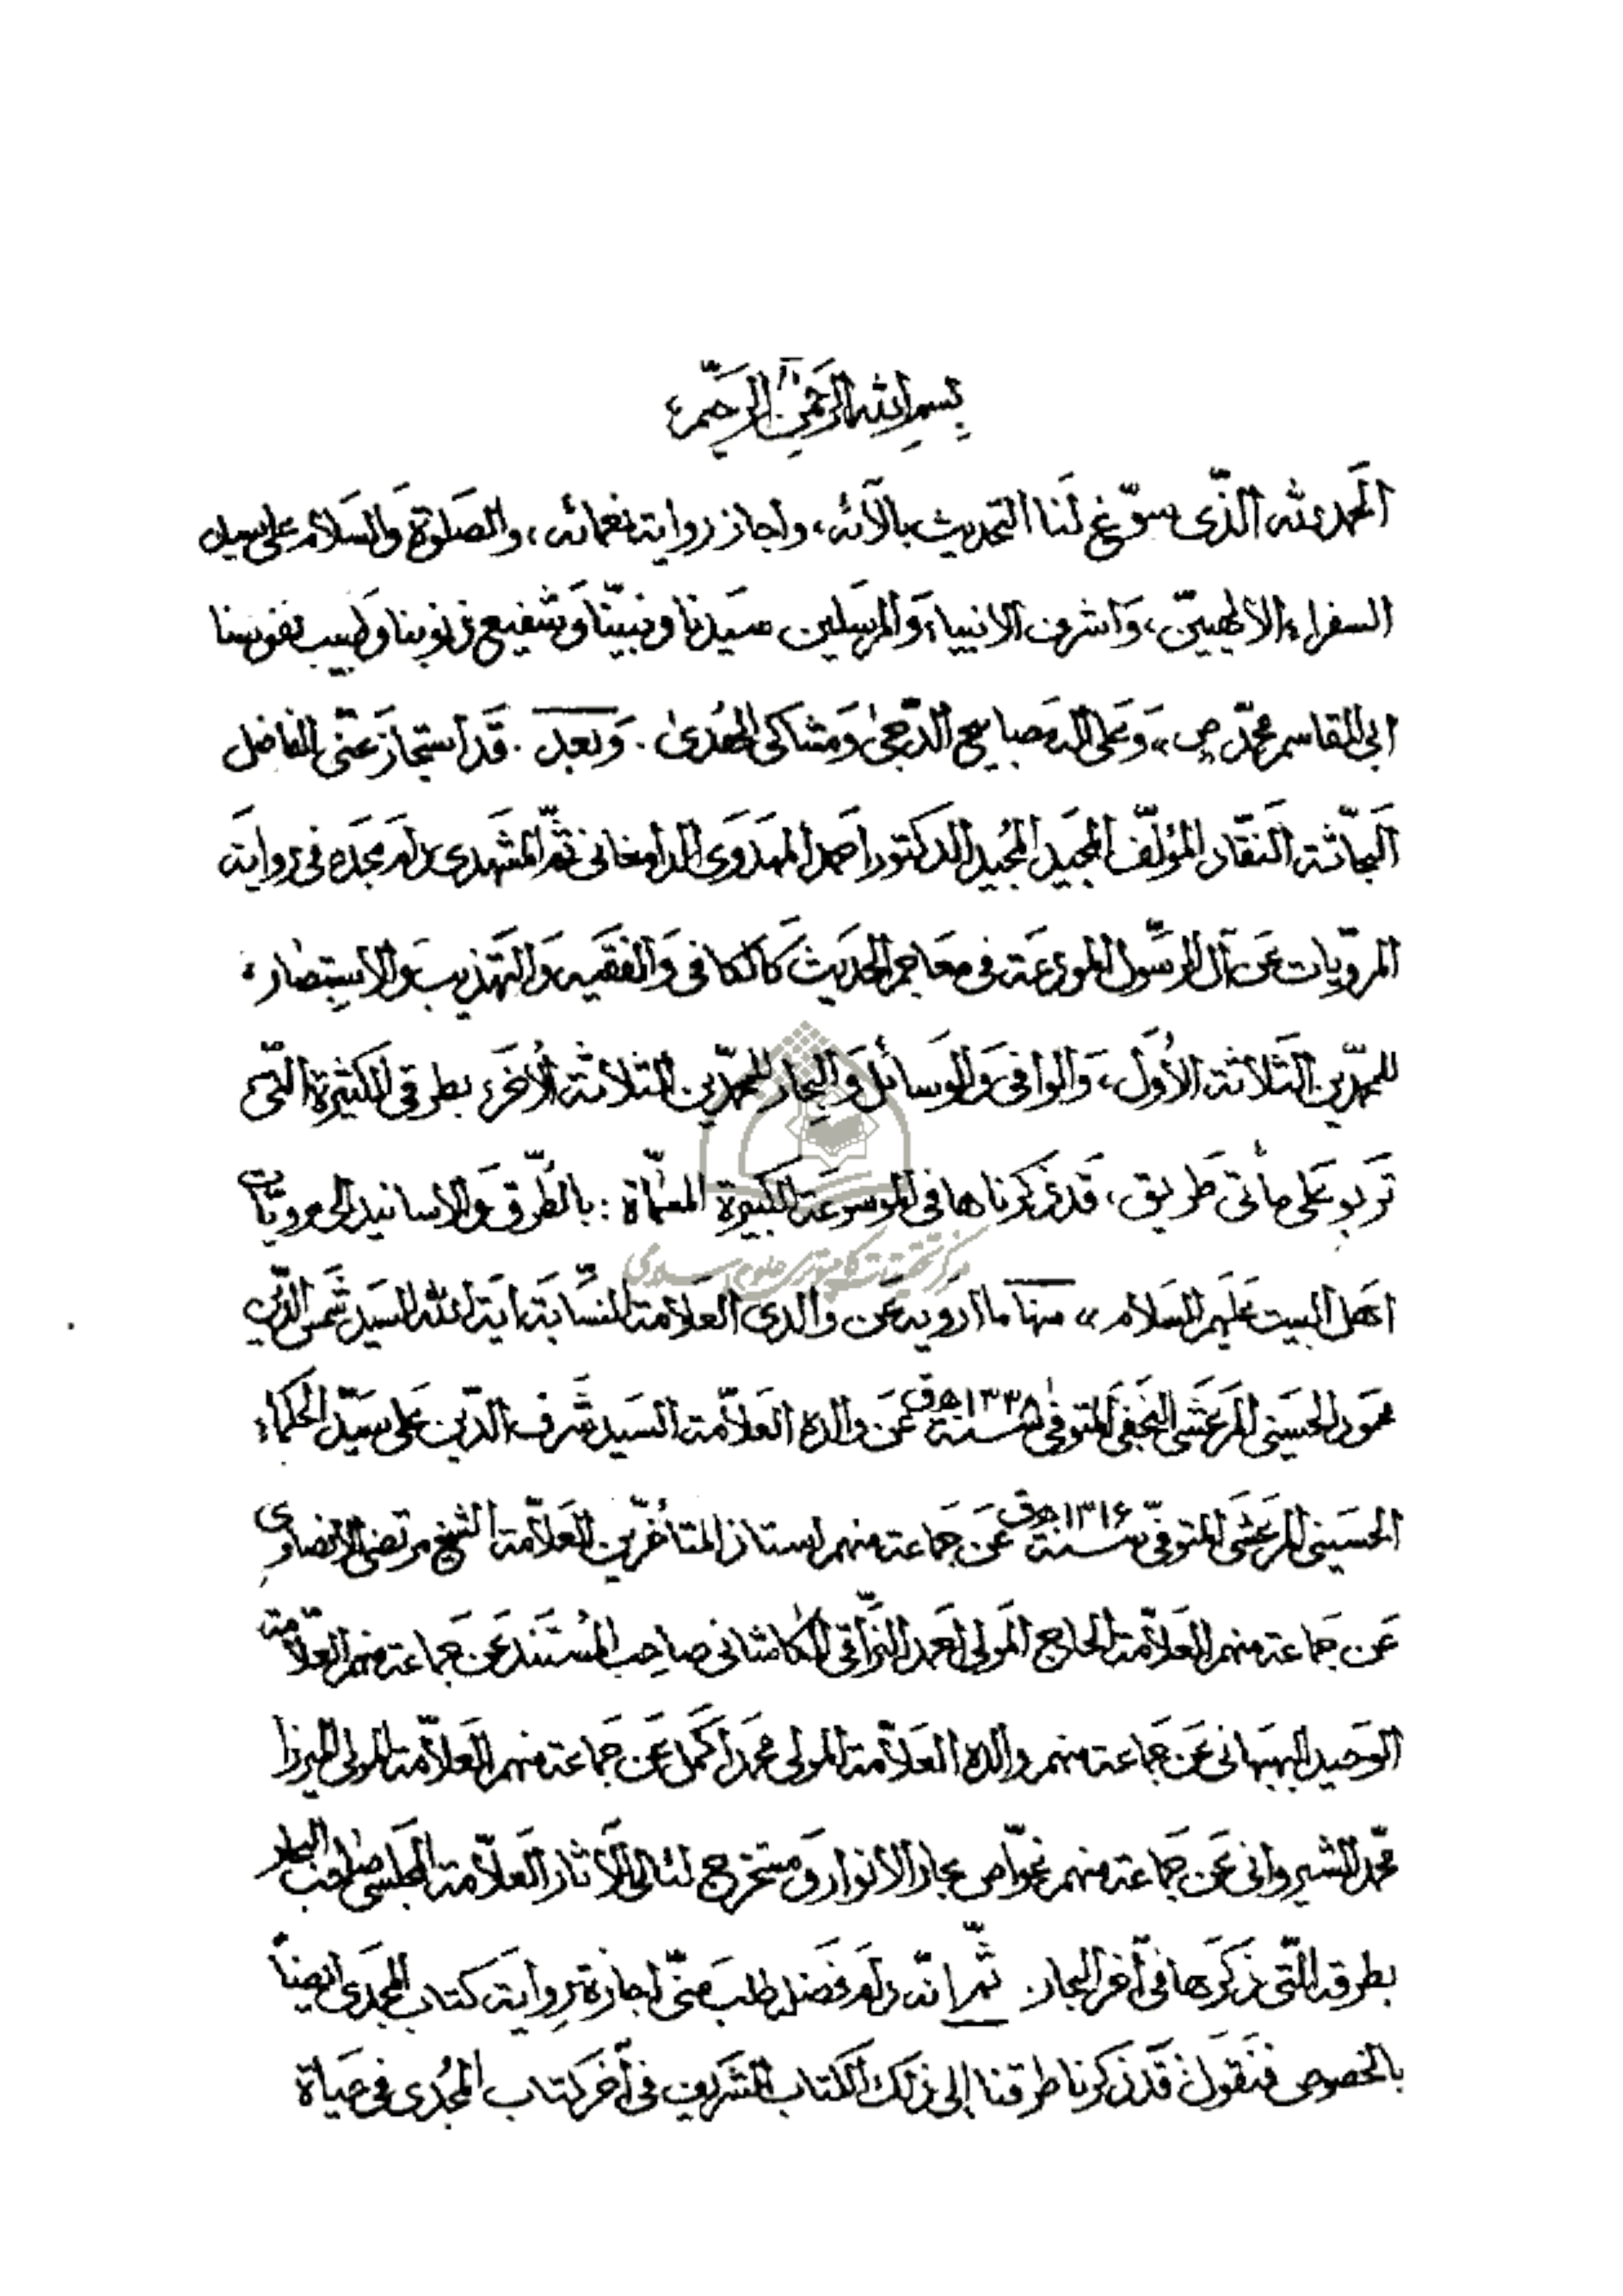 بسم الله الرحمن الرحيم
الحمد لله الذّى سوّغ لنا التحديث بالآئه، واجاز رواية نعمائه، والصلوة والسلام على سيد
السفراء الالهيّين، واشرف الانبياء والمرسلين سيدنا ونبيّنا وشفيع ذنوبنا وطبيب نفوسنا
ابى القاسم محمّد ص، وعلى آله مصابيح الدّجى ومشاكى الهُدى . وبعد . قد استجاز عنّى الفاضل
البحّاثة النقّاد المؤلّف المجيد المجيد الدكتور احمد المهدوى الدامغانى ثمّ المشهدى دام مجده فى رواية
المرويّات عن آل الرسّول المودعة فى معاجم الحديث كالكافى والفقيه والتهذيب والاستبصار
للمحمّدين الثلاثة الاُول، والوافى والوسائل والبحار للمحمّدين الثلاثة الاُخر، بطرقى الكثيرة التّى
تربو على مأتى طريق، قد ذكرناها فى الموسوعة الكبيرة المسمّاة : بالطّرق والاسانيد الى مرويّات
اهل البيت عليهم السلام ،، منها ما ارويه عن والدى العلامة النسّابة آية الله السيد شمس الدّين
محمود الحسينى المرعشى النجفى المتوفى سنة ١٣٣٨ه‍ ق عن والده العلاّمة السيد شرف الدّين على سيّد الحكماء
الحسينى المرعشى المتوفّى سنة ١٣١۶ه‍ ق عن جماعة منهم استاذ المتأخّرين العلاّمة الشيخ مرتضى الانصارى
عن جماعة منهم العلاّمة الحاج المولى احمد النّراقى الكاشانى صاحب المستند عن جماعة منهم العلاّمة
الوحيد البهبهانى عن جماعة منهم والده العلاّمة المولى محمد اكمل عن جماعة منهم العلاّمة المولى الميرزا
محمّد الشيروانى عن جماعة منهم غوّاص بحار الانوار ومستخرج لئالى الآثار العلاّمة المجلسى صاحب البحار
بطرقه التّى ذكرها فى آخر البحار . ثمّ انّه دام فضله طلب منّى اجازة رواية كتاب المجدى ايضاً
بالخصوص فنقول قد ذكرنا طرقنا إلى ذلك الكتاب الشريف فى آخر كتاب المجُدى فى حياة
مركز تحقيقات كامپيوترى علوم اسلامى